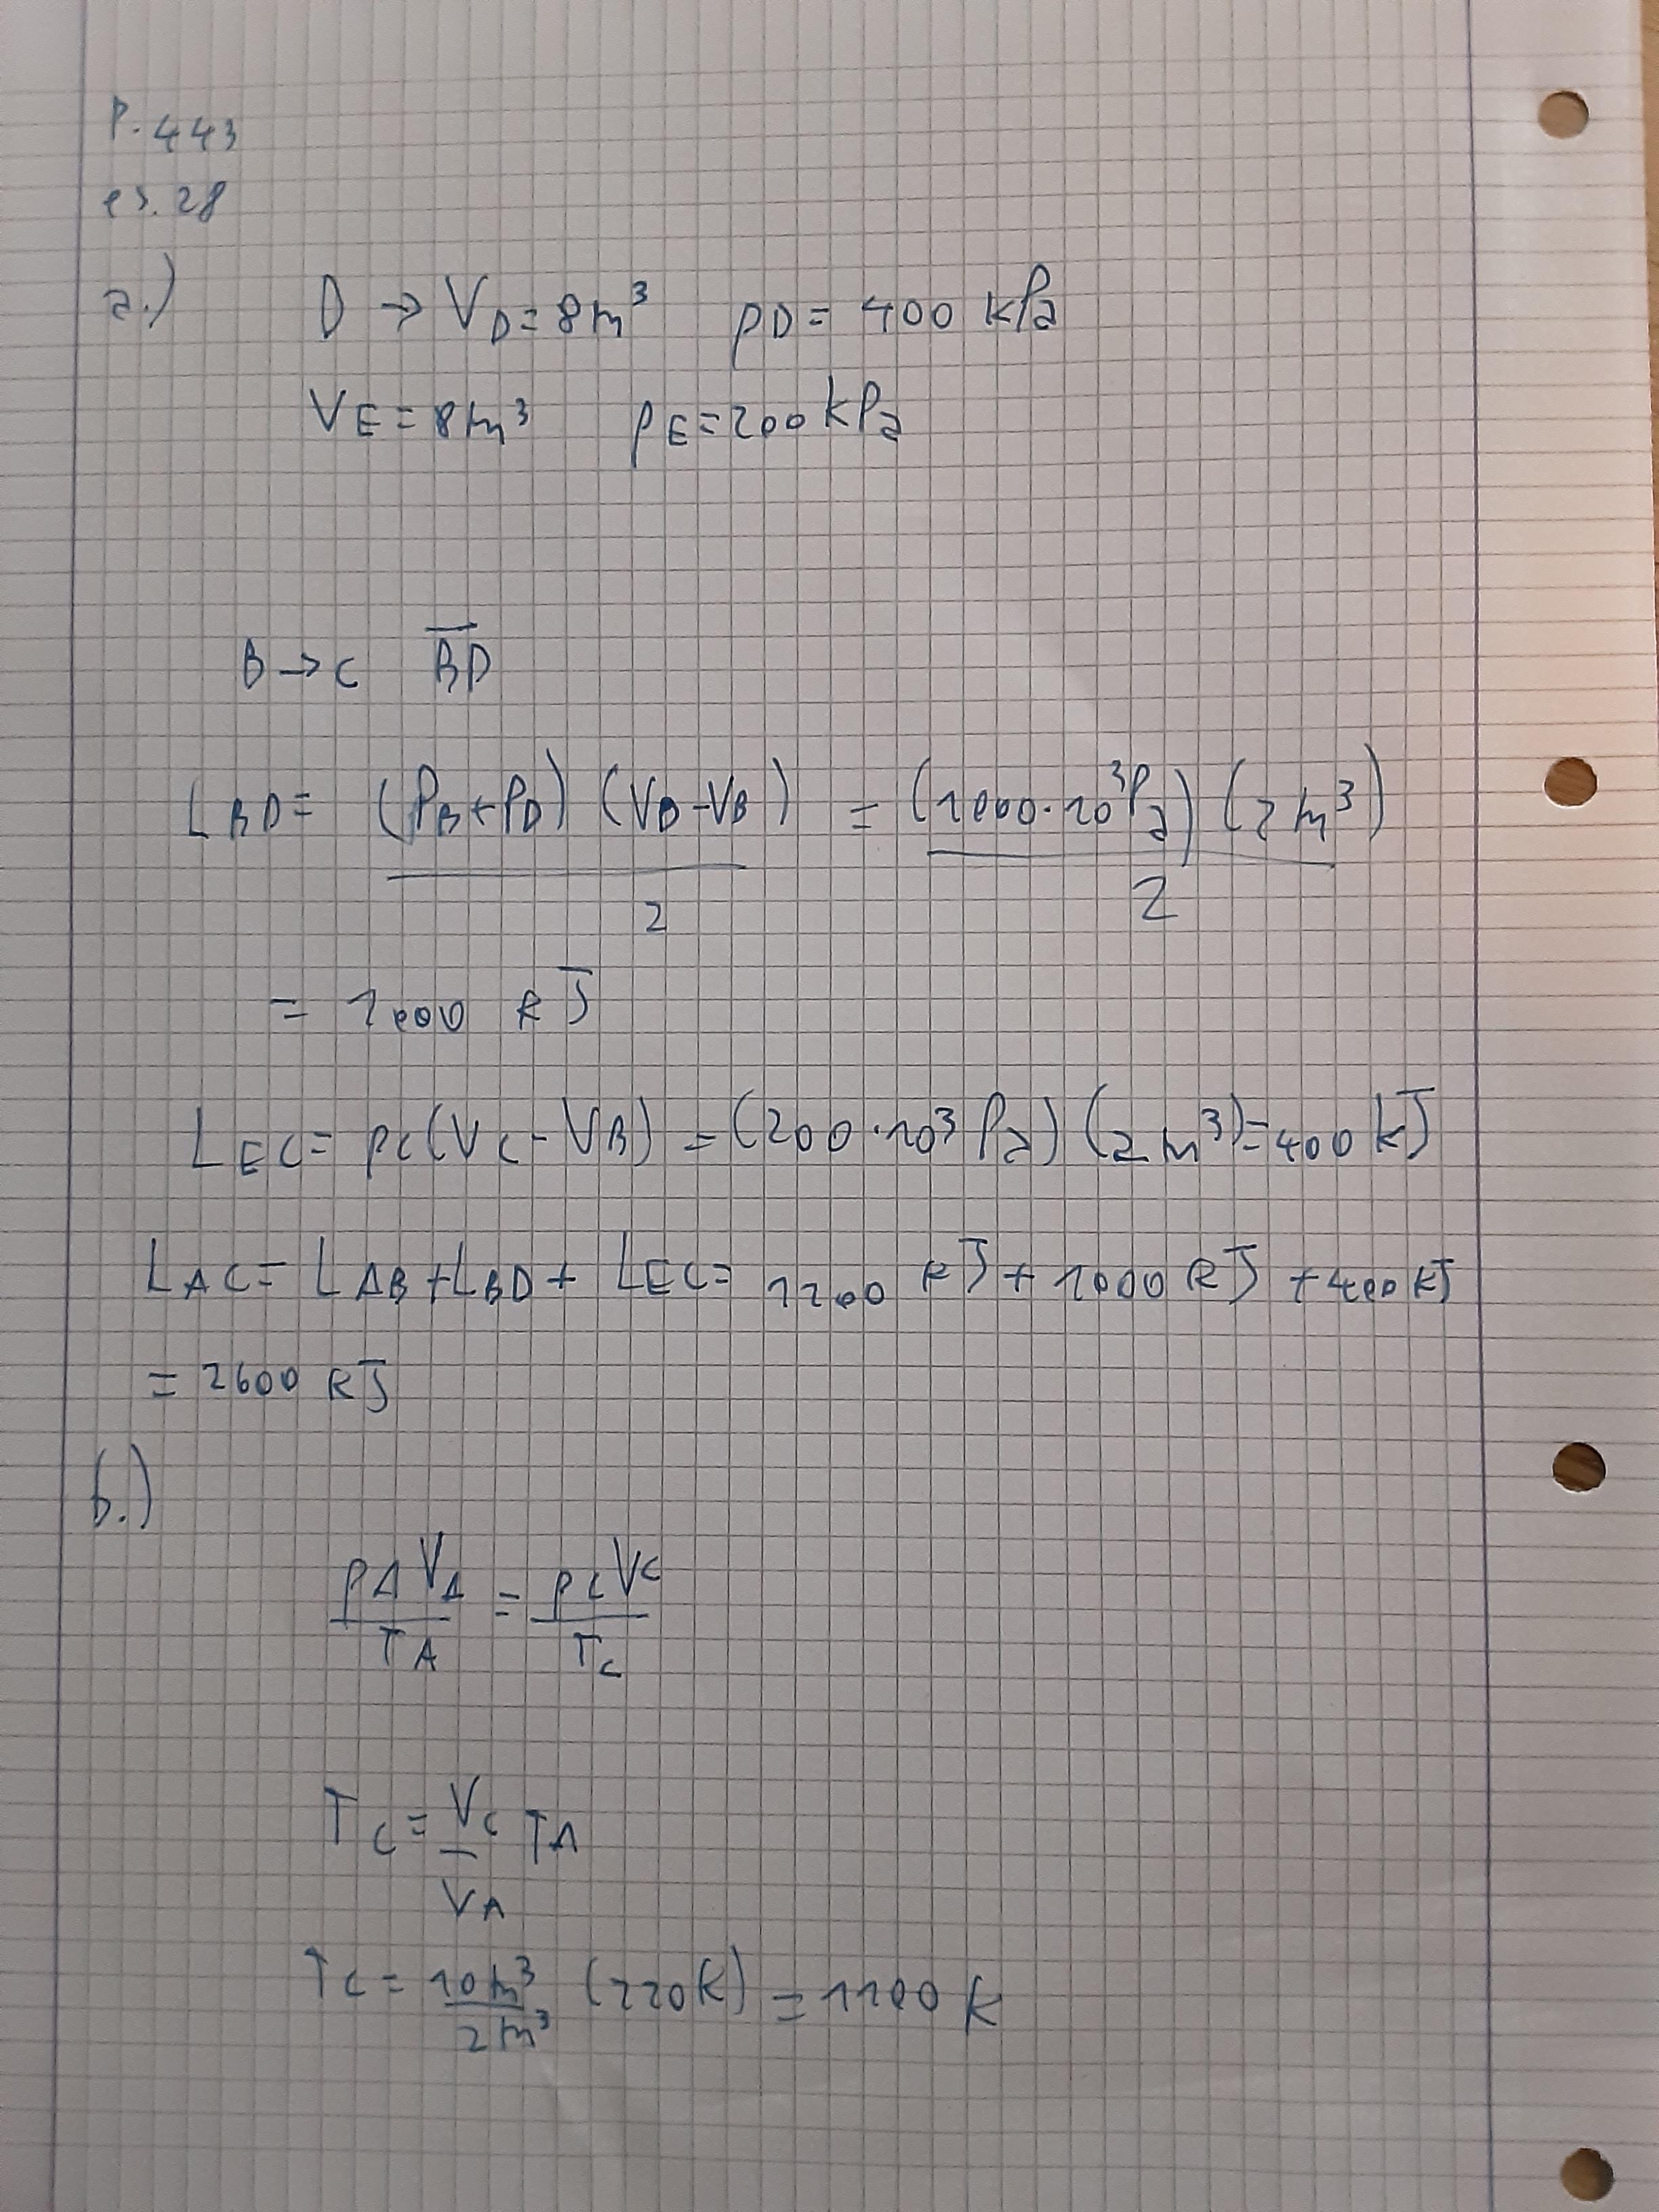 P. 443
es. 28
a.) D → V_D = 8 m³ pD = 400 kPa
V_E = 8 m³ p_E = 200 kPa
B → C \overline{BD}
L_BD = (P_B + P_D) (V_D - V_B) / 2 = (1000 · 10³ Pa) (2 m³) / 2
= 1000 kJ
L_EC = p_C (V_C - V_B) = (200 · 10³ Pa) (2 m³) = 400 kJ
L_AC = L_AB + L_BD + L_EC = 1200 kJ + 1000 kJ + 400 kJ
= 2600 kJ
b.)
p_A V_A / T_A = p_C V_C / T_C
T_C = V_C / V_A T_A
T_C = 10 m³ / 2 m³ (220 K) = 1100 K